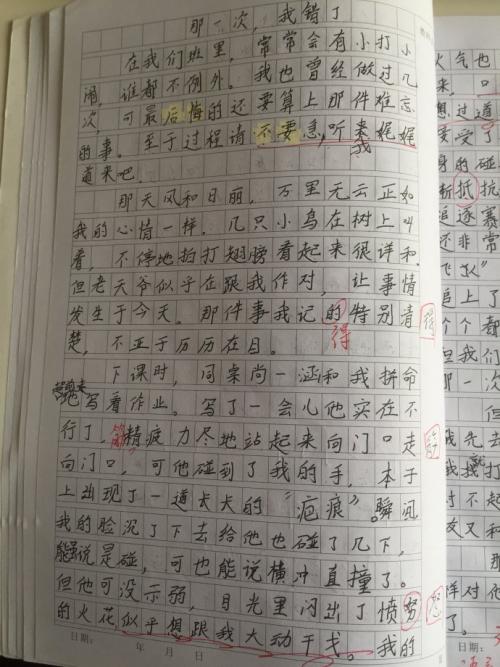 那一次，我错了
在我们班里，常常会有小打小
闹，谁都不例外。我也曾经做过几
次，可最后悔的还要算上那件难忘
的事。至于过程请不要急，听来娓娓
我
道来吧。
那天风和日丽，万里无云正如
我的心情一样。几只小鸟在树上叫
着，不停地拍打翅膀看起来很详和。
但老天爷似乎在跟我作对，让事情
发生于今天。那件事我记的特别清 得
楚，不亚于历历在目。 得
下课时，同桌尚一涵和我拼命
地写着作业。写了一会儿他实在不
行了，筋精疲力尽地站起来向门口走
向门口，可他碰到了我的手，本子
上出现了一道长长的“疤痕”。瞬间
我的脸沉了下去给他也碰了几下，
虽说是碰，可也能说横冲直撞了。
但他可没示弱，目光里闪出了愤努 怒
的火花似乎想跟我大动干戈。我的
日期： 年 月 日
火气也
来，
想，过道
要受了
身的碰
抵抗
追逐暴
还非常
飞
追上了
个个都
但我们
那一次
但
我先去
我打
对不起
又和
那
样对他
日期：